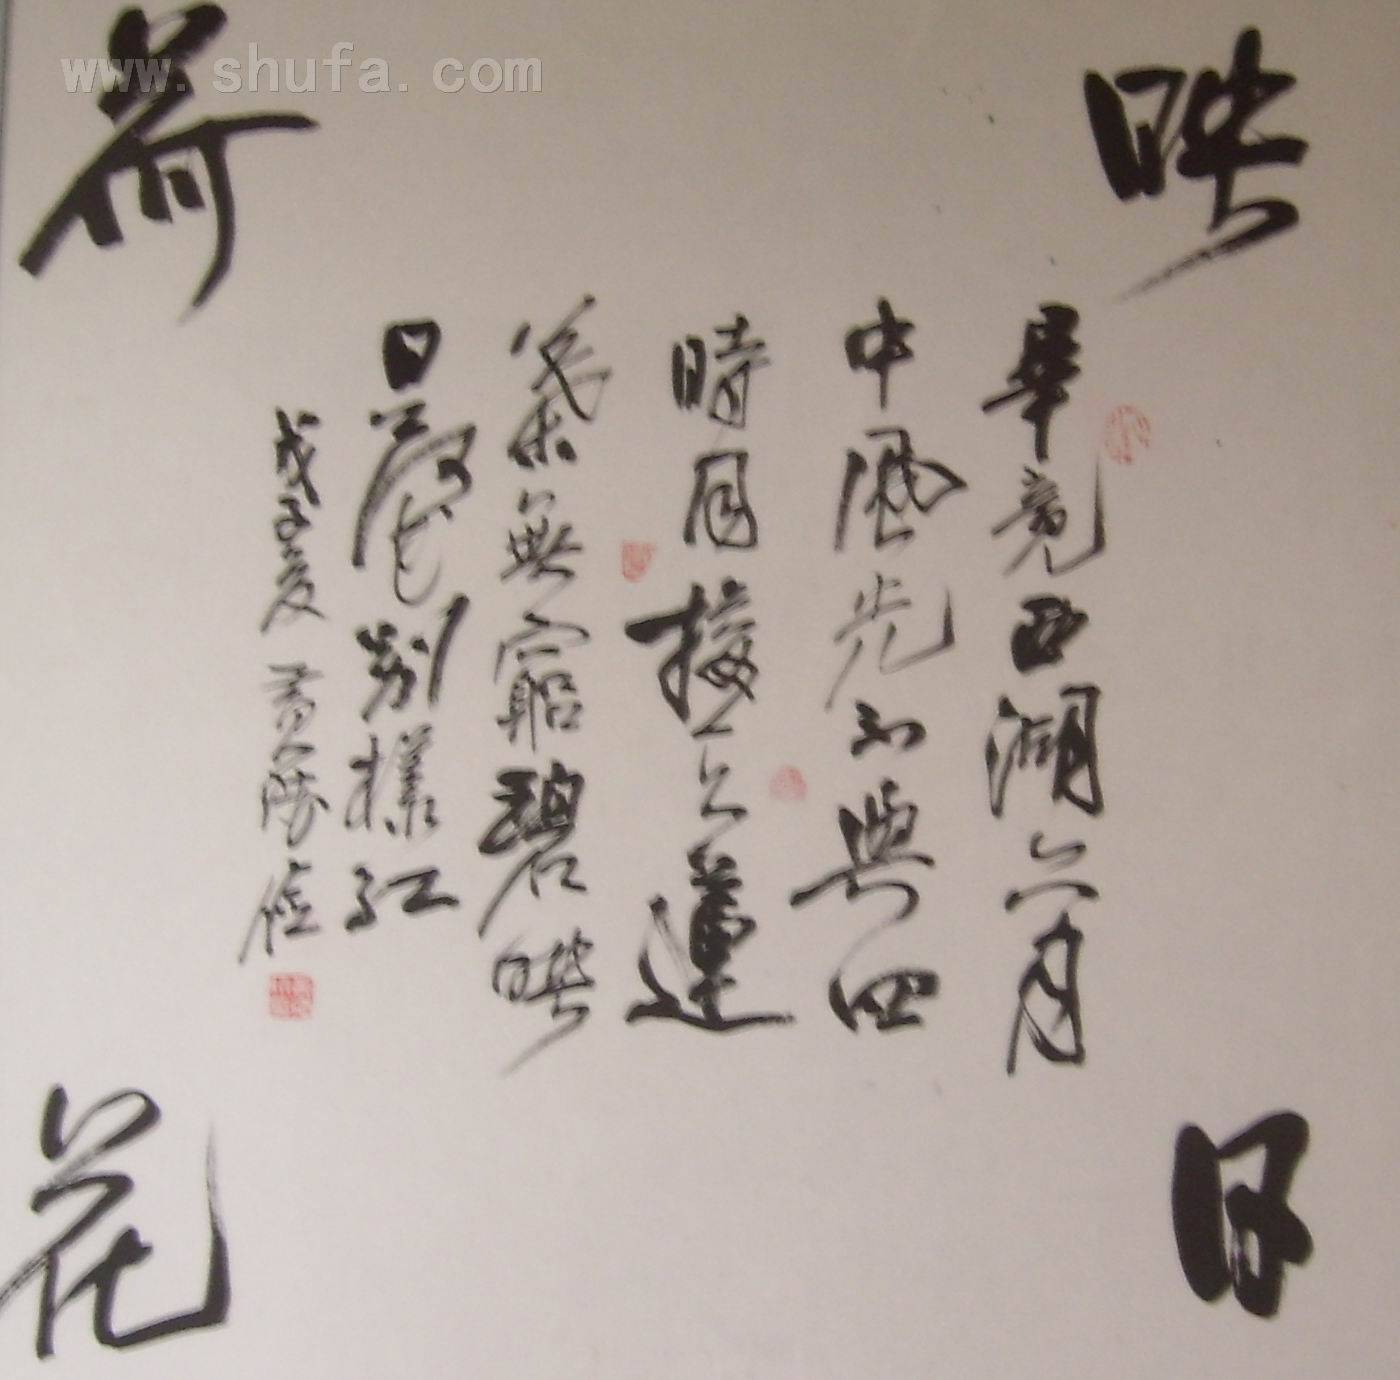 www.shufa.com
映日
荷花
畢竟西湖六月
中風光不與四
時同接天蓮
葉無窮碧映
日荷花別樣紅
戊子夏